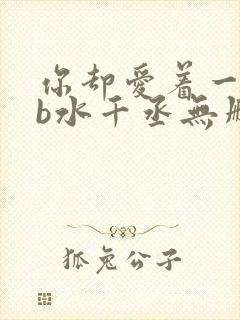 你却爱着一
b水千丞無
狐兔公子